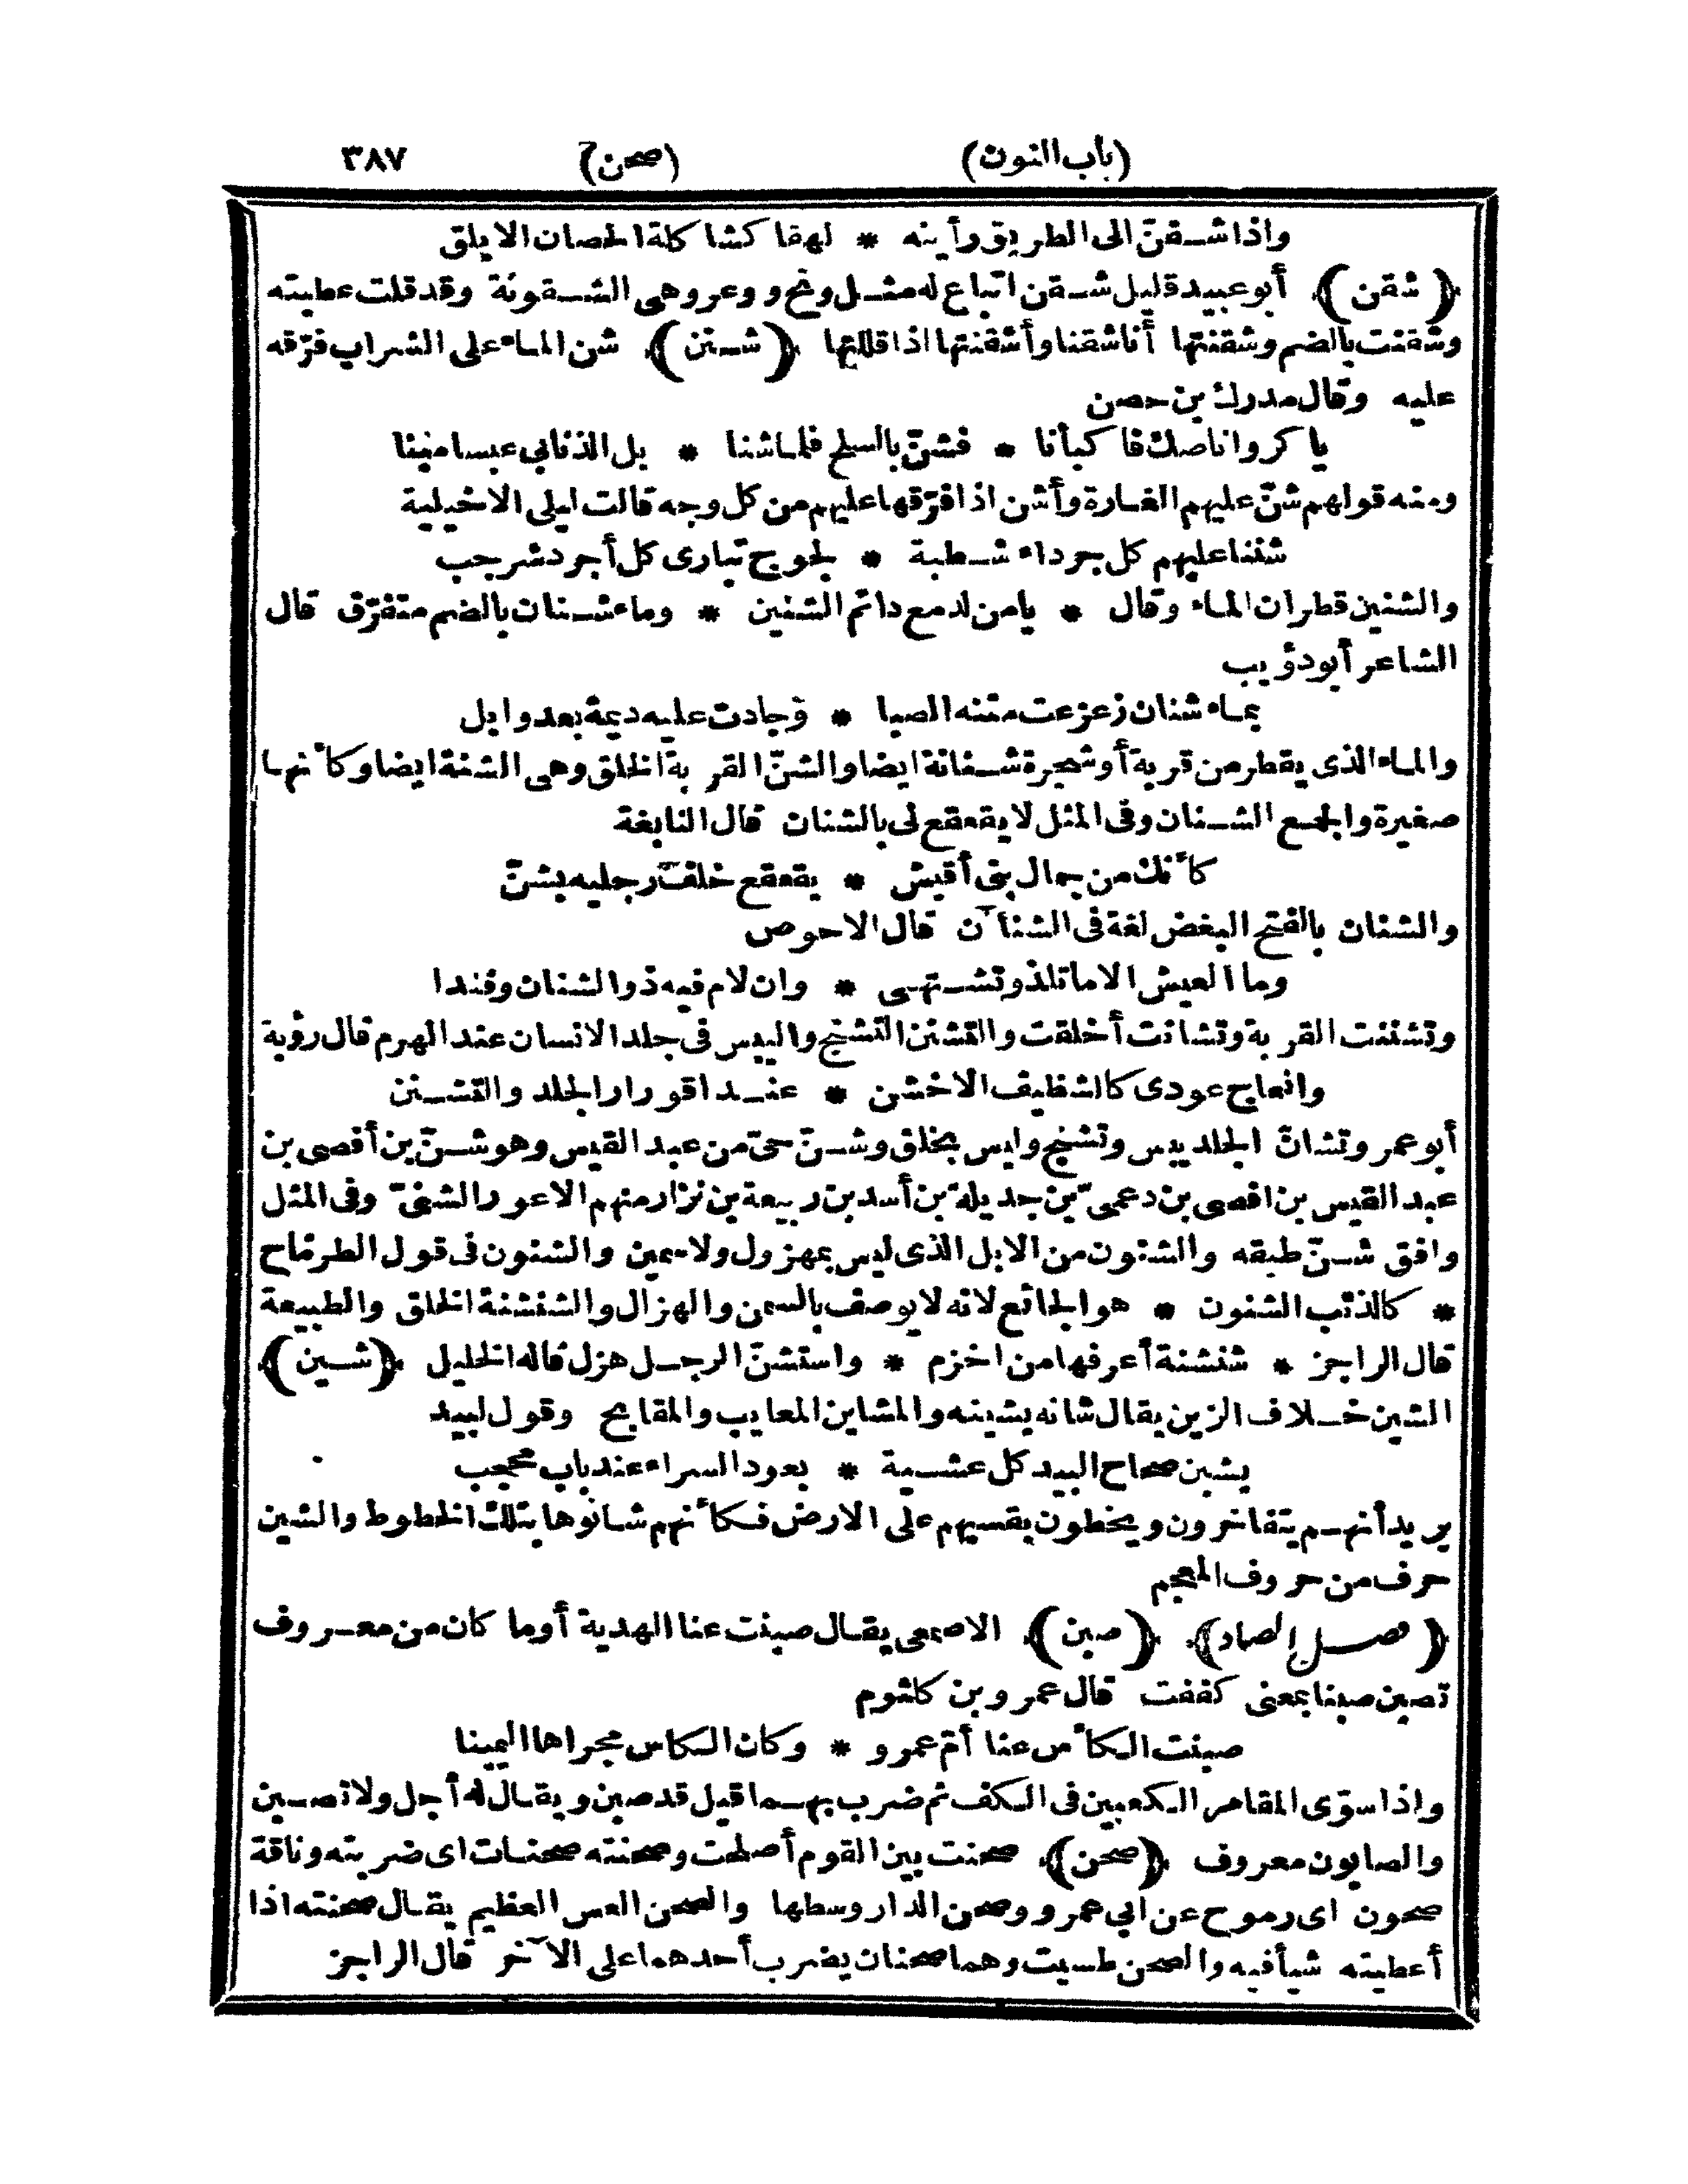 (باب النون) (صحن) ٣٨٧
واذا شقنّ الى الطريق رأيته * لهقا كشاكلة الحصان الابلق
﴿شقن﴾ أبو عبيد قليل شقن اتباع له مثل وتح ووعر وهى الشقونة وقد قلت عطيته
وشقنت بالضم وشقنتها أنا شقنا وأشقنتها اذا قللتها ﴿شنن﴾ شن الماء على الشراب فرّقه
عليه وقال مدرك بن حصن
يا كروانا صك فاكبأنا * فشنّ بالسلح فلما شنا * بل الذنابى عبسا مبنا
ومنه قولهم شنّ عليهم الغارة وأشن اذا فرّقها عليهم من كل وجه قالت ليلى الاخيلية
شننا عليهم كل جرداء شطبة * لجوج تبارى كل أجرد شرجب
والشنين قطران الماء وقال * يا من لدمع دائم الشنين * وماء شنان بالضم متفرّق قال
الشاعر أبو ذؤيب
بماء شنان زعزعت متنه الصبا * وجادت عليه ديمة بعد وابل
والماء الذى يقطر من قربة أو شجرة شنانة ايضا والشنّ القربة الخلق وهى الشنة ايضا وكأنها
صغيرة والجمع الشنان وفى المثل لا يقعقع لى بالشنان قال النابغة
كأنك من جمال بنى أقيش * يقعقع خلف رجليه بشنّ
والشنان بالفتح البغض لغة فى الشنآن قال الاحوص
وما العيش الا ما تلذ وتشتهى * وان لام فيه ذو الشنان وفندا
وتشننت القربة وتشانت أخلقت والتشنن التشنج واليبس فى جلد الانسان عند الهرم قال رؤبة
وانعاج عودى كالشظيف الاخشن * عند اقورار الجلد والتشنن
أبو عمرو تشانّ الجلد يبس وتشنج وليس بخلق وشنّ حىّ من عبد القيس وهو شنّ بن أفصى بن
عبد القيس بن افصى بن دعمىّ بن جديلة بن أسد بن ربيعة بن نزار منهم الاعور الشنىّ وفى المثل
وافق شنّ طبقه والشنون من الابل الذى ليس بمهزول ولا سمين والشنون فى قول الطرماح
* كالذئب الشنون * هو الجائع لانه لا يوصف بالسمن والهزال والشنشنة الخلق والطبيعة
قال الراجز * شنشنة أعرفها من اخزم * واستشنّ الرجل هزل قاله الخليل ﴿شين﴾
الشين خلاف الزين يقال شانه يشينه والمشاين المعايب والمقابح وقول لبيد
يشين صحاح البيد كل عشية * بعود السراء عند باب محجب
يريد أنهم يتفاخرون ويخطون بقسيهم على الارض فكأنهم شانوها بتلك الخطوط والشين
حرف من حروف المعجم
﴿فصل الصاد﴾ ﴿صبن﴾ الاصمعى يقال صبنت عنا الهدية أو ما كان من معروف
تصبن صبنا بمعنى كففت قال عمرو بن كلثوم
صبنت الكأس عنا أمّ عمرو * وكان الكاس مجراها اليمينا
واذا سوّى المقامر الكعبين فى الكف ثم ضرب بهما قيل قد صبن ويقال له أجل ولا تصبن
والصابون معروف ﴿صحن﴾ صحنت بين القوم أصلحت وصحنته صحنات اى ضربته وناقة
صحون اى رموح عن ابى عمرو وصحن الدار وسطها والصحن العس العظيم يقال صحنته اذا
أعطيته شيأ فيه والصحن طسيت وهما صحنان يضرب أحدهما على الآخر قال الراجز